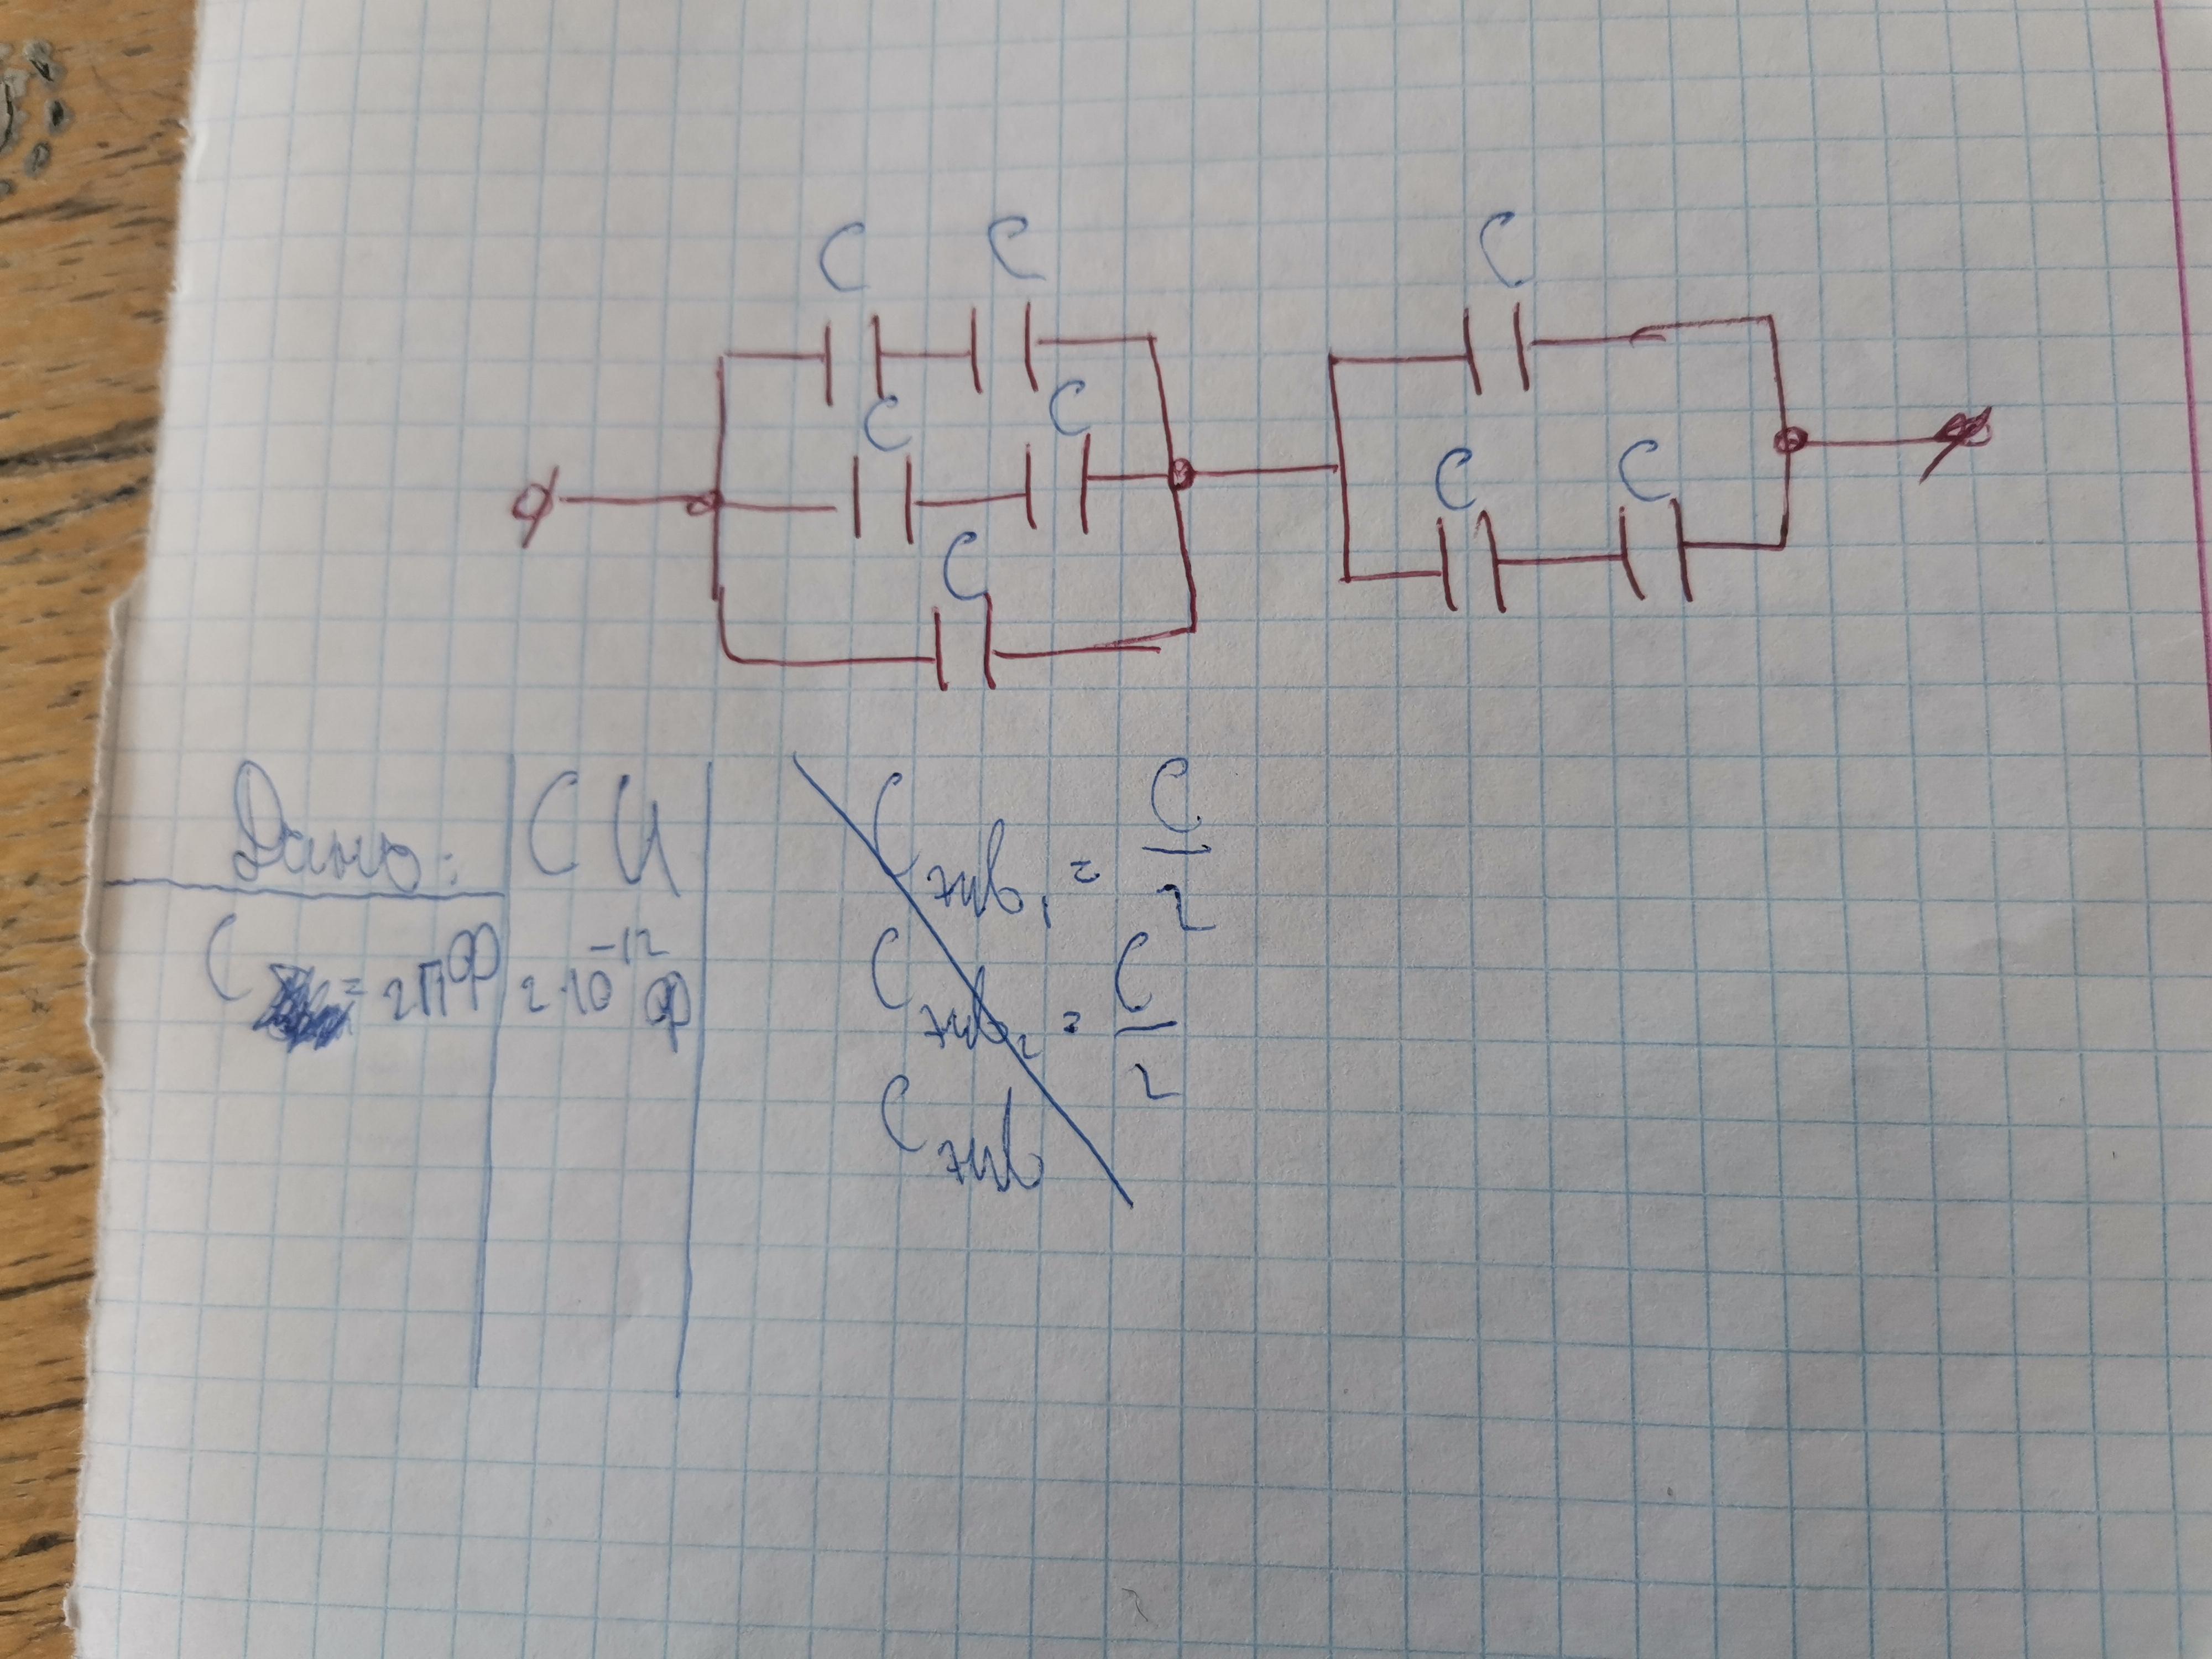 C C C
C C C C
C
Дано: СИ
C = 2пФ 2·10⁻¹² Ф
Cэкв₁ = C/2
Cэкв₂ = C/2
Cэкв